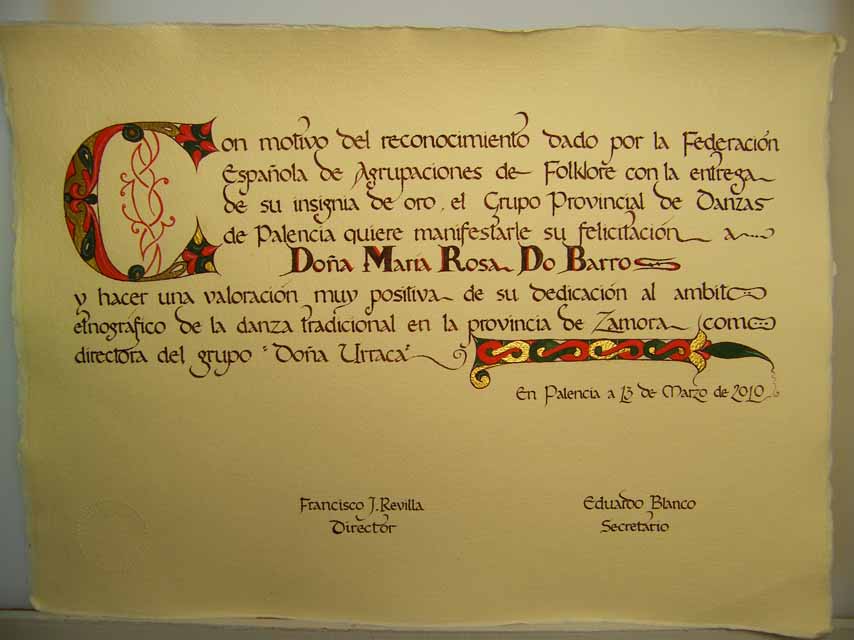 Con motivo del reconocimiento dado por la Federación
Española de Agrupaciones de Folklore con la entrega
de su insignia de oro, el Grupo Provincial de Danzas
de Palencia quiere manifestarle su felicitación a
Doña María Rosa Do Barro
y hacer una valoración muy positiva de su dedicación al ambito
etnográfico de la danza tradicional en la provincia de Zamora como
directora del grupo "Doña Urraca"
En Palencia a 13 de Marzo de 2010
Francisco J. Revilla
Director
Eduardo Blanco
Secretario